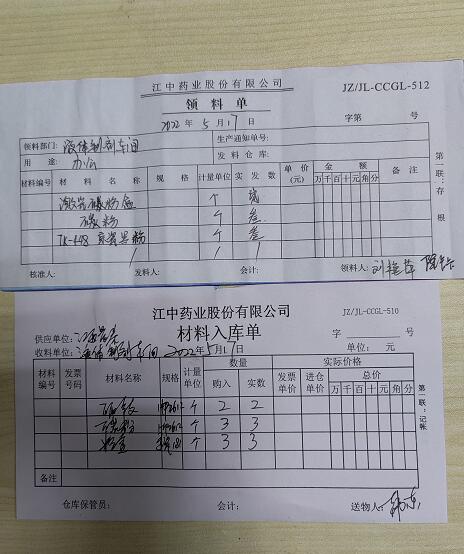 江中药业股份有限公司
JZ/JL-CCGL-512
领料单
2022年5月17日 字第 号
领料部门: 液体制剂车间 生产通知单号:
用途: 办公 发料仓库:
材料编号 材料名称 规格 计量单位 实发数 单价(元) 金额 备注
万千百十元角分
激光碳粉盒 个 贰
碳粉 个 叁
TK-448 个 叁
核准人: 发料人: 会计: 领料人:
第一联:存根
江中药业股份有限公司
JZ/JL-CCGL-510
材料入库单
字 号
供应单位:
收料单位: 液体制剂车间 2022年5月17日 单位: 元
材料编号 发票号码 材料名称 规格 计量单位 数量 实际价格
购入 实数 发票单价 进仓单价 总价
万千百十元角分
个 2 2
个 3 3
个 3 3
备注
仓库保管员: 会计: 送物人:
第一联:记帐